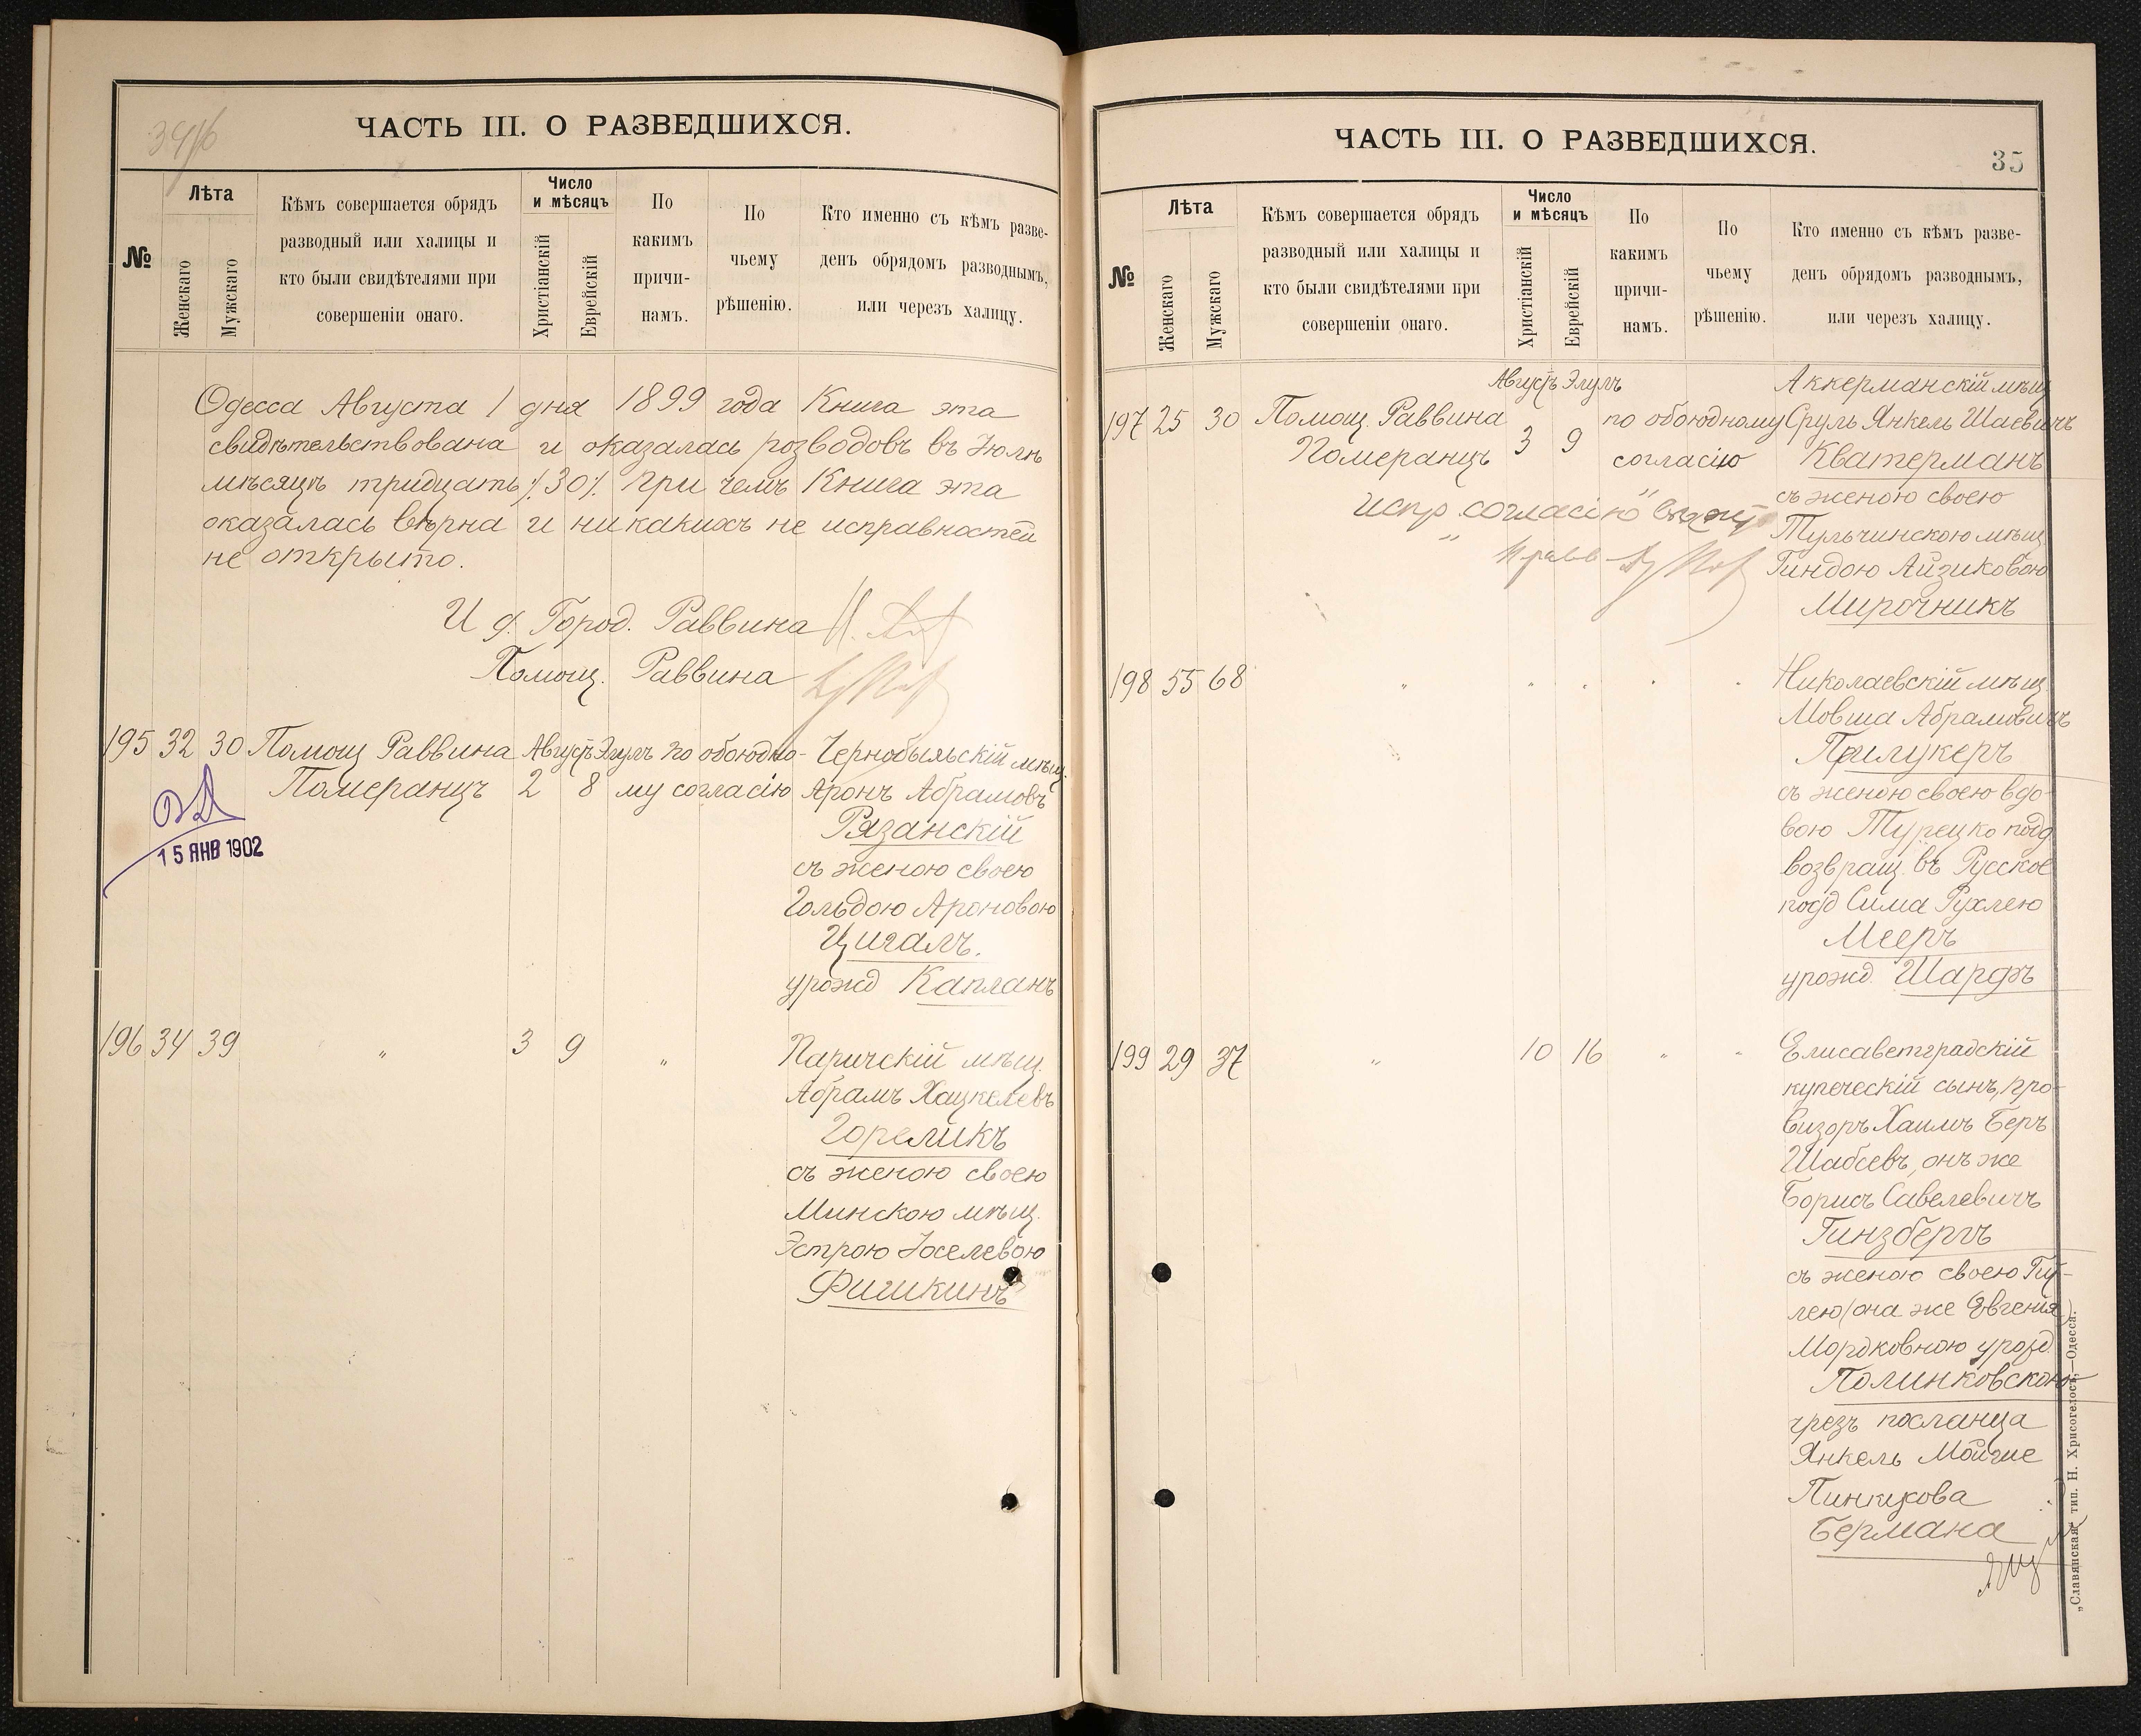 ЧАСТЬ III. О РАЗВЕДШИХСЯ.
№
Лѣта
Женскаго
Мужскаго
Кѣмъ совершается обрядъ
разводный или халицы и
кто были свидѣтелями при
совершеніи онаго.
Число
и мѣсяцъ
Христіанскій
Еврейскій
По
какимъ
причи-
намъ.
По
чьему
рѣшенію.
Кто именно съ кѣмъ разве-
денъ обрядомъ разводнымъ,
или черезъ халицу.
Одесса Августа 1 дня 1899 года Книга эта
свидѣтельствована и оказалась розводовъ въ Іюлѣ
мѣсяцѣ тридцать ./.30./. при чемъ Книга эта
оказалась вѣрна и никакихъ не исправностей
не открыто.
И д. Город. Раввина
Помощ. Раввина
195 32 30 Помощ Раввина Августъ Элулъ по обоюдно- Чернобыльскій мѣщ.
Померанцъ 2 8 му согласію Аронъ Абрамовъ
Рязанскій
съ женою своею
Гольдою Ароновою
Цигалъ.
урожд Капланъ
15 ЯНВ 1902
196 34 39 " 3 9 " Паричскій мѣщ.
Абрамъ Хацкелевъ
Гореликъ
съ женою своею
Минскою мѣщ.
Эстрою Іоселевою
Фишкинъ
ЧАСТЬ III. О РАЗВЕДШИХСЯ.
35
№
Лѣта
Женскаго
Мужскаго
Кѣмъ совершается обрядъ
разводный или халицы и
кто были свидѣтелями при
совершеніи онаго.
Число
и мѣсяцъ
Христіанскій
Еврейскій
По
какимъ
причи-
намъ.
По
чьему
рѣшенію.
Кто именно съ кѣмъ разве-
денъ обрядомъ разводнымъ,
или черезъ халицу.
Августъ Элулъ Аккерманскій мѣщ
197 25 30 Помощ. Раввина 3 9 по обоюдному Сруль Янкель Шаевичъ
Померанцъ согласію Кватерманъ
съ женою своею
Испр. "согласію"
Тульчинскою мѣщ
Гиндою Айзиковою
Мирочникъ
198 55 68 " " " " " Николаевскій мѣщ.
Мовша Абрамовичъ
Прилукеръ
съ женою своею вдо-
вою Турецко подд
возвращ. въ Русское
подд Сима Рухлею
Мееръ
урожд. Шарфъ
199 29 37 " 10 16 " " Елисаветградскій
купеческій сынъ, про-
визоръ Хаимъ Беръ
Шабсевъ, онъ же
Борисъ Савелевичъ
Гинзбергъ
съ женою своею Ги-
лею (она же Евгенія)
Мордковною урожд.
Полинковскою
чрезъ посланца
Янкель Мойше
Пинкусова
Бермана
„Славянская“ тип. Н. Хрисогелосъ.—Одесса.